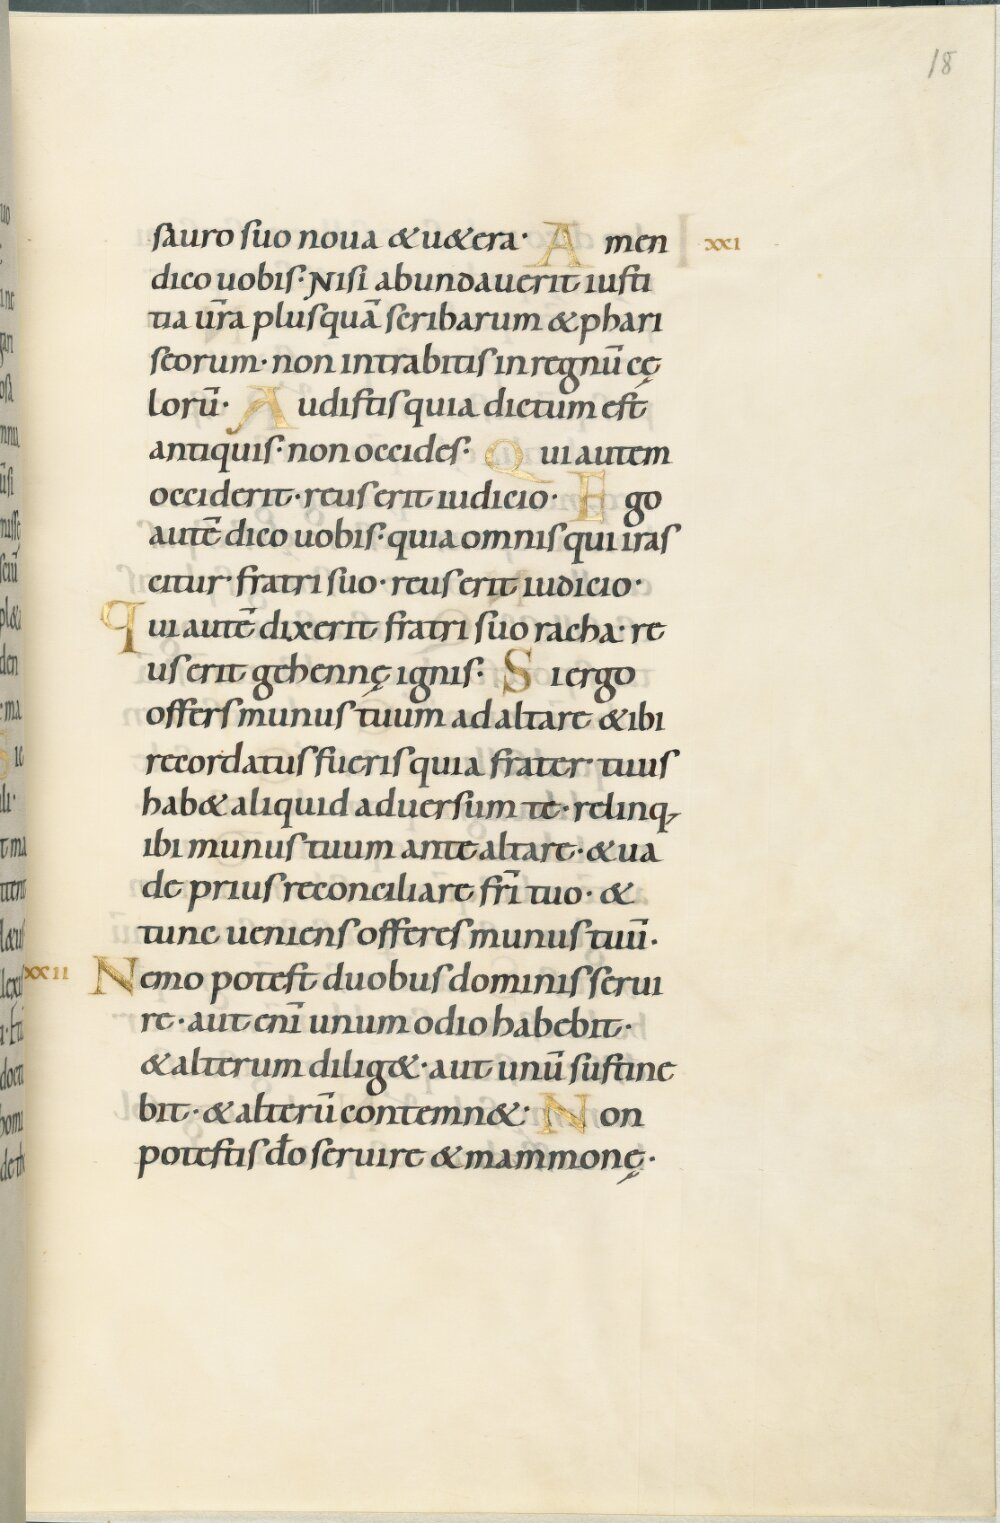 18
sauro suo noua &u&era· Amen xxi
dico uobis· Nisi abundauerit iusti
tia ūra plusquā scribarum &phari
seorum· non intrabitis in regnū cę
lorū· Audistis quia dictum est
antiquis· non occides· Qui autem
occiderit· reus erit iudicio· Ego
autē dico uobis· quia omnis qui iras
citur· fratri suo· reus erit iudicio·
qui autē dixerit fratri suo racha· re
us erit gehennę ignis· Si ergo
offers munus tuum ad altare &ibi
recordatus fueris quia frater· tuus
hab& aliquid aduersum te· relinq,
ibi munus tuum ante altare· &ua
de prius reconciliare fr̄i tuo· &
tunc ueniens offeres munus tuū·
xxii Nemo potest duobus dominis serui
re· aut enī unum odio habebit·
&alterum dilig&· aut unū sustine
bit· &alterū contemn&· Non
potestis đo seruire &mammonę·